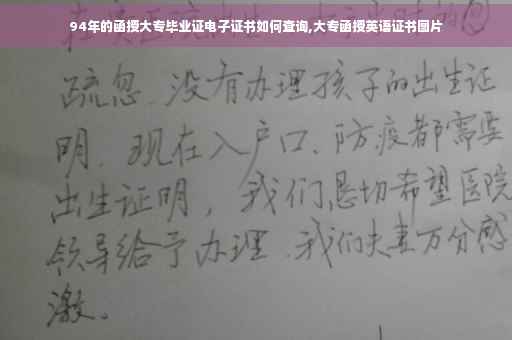 94年的函授大专毕业证电子证书如何查询,大专函授英语证书图片
疏忽.没有办理孩子的出生证
明.现在入户口、防疫都需要
出生证明，我们恳切希望医院
领导给予办理.我们夫妻万分感
激。